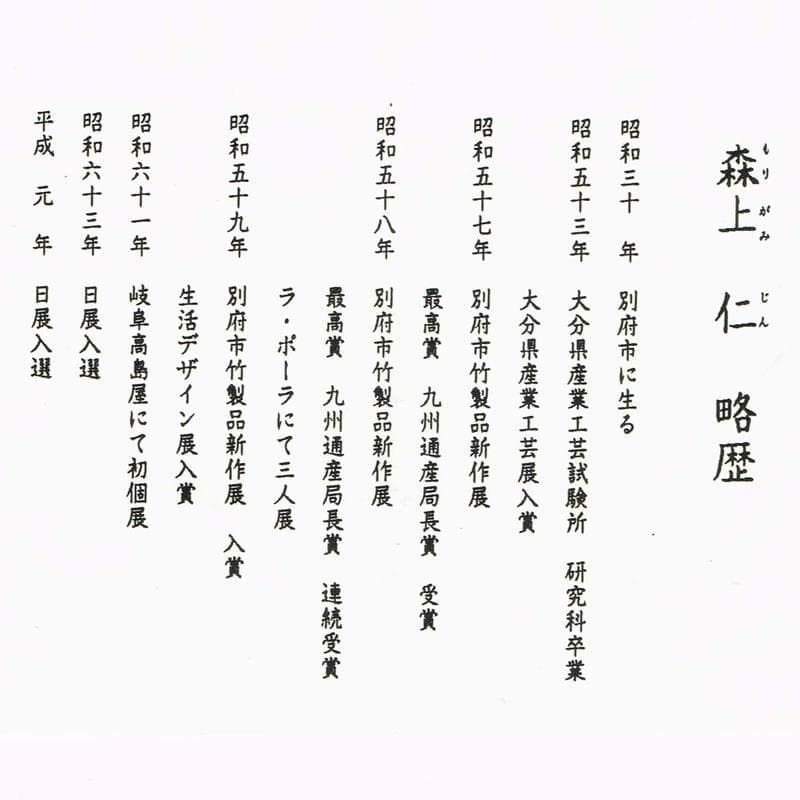 森上 仁 略歴
もりがみ じん
昭和三十 年 別府市に生る
昭和五十三年 大分県産業工芸試験所 研究科卒業
大分県産業工芸展入賞
昭和五十七年 別府市竹製品新作展
最高賞 九州通産局長賞 受賞
昭和五十八年 別府市竹製品新作展
最高賞 九州通産局長賞 連続受賞
ラ・ポーラにて三人展
昭和五十九年 別府市竹製品新作展 入賞
生活デザイン展入賞
昭和六十一年 岐阜高島屋にて初個展
昭和六十三年 日展入選
平成 元 年 日展入選